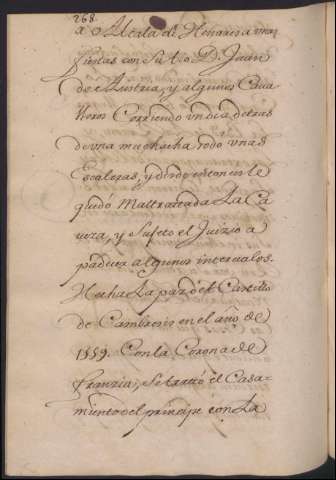 268.
a Alcala de Henares a unas
fiestas con su tio D. Juan
de Austria, y algunos Cava
lleros Corriendo un dia detras
de una muchacha rodo unas
Escaleras, y desde entonces le
quedó Maltratada La Ca
veza, y Sujeto el Juizio a
padecer algunos intervalos.
Hecha La paz de el Castillo
de Cambresis en el año de
1559. Con la Corona de
Franzia, Se trató el Casa-
miento del principe con La